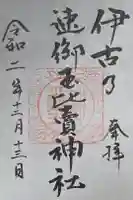 奉拝
伊古乃
速御玉比賣神社
令和二年十二月十三日